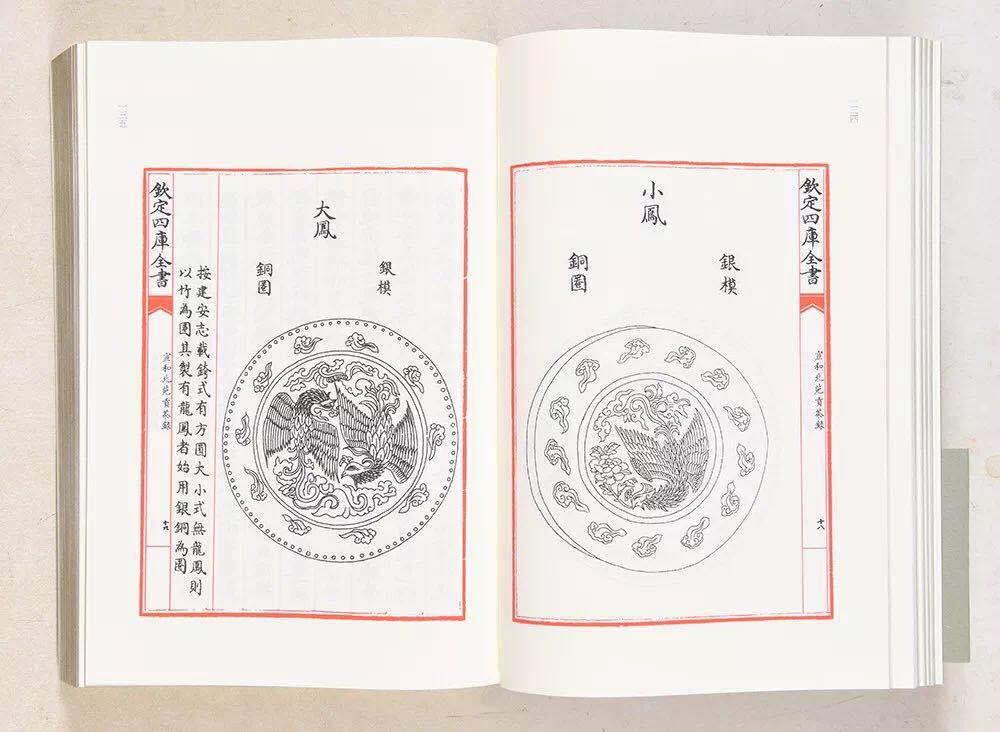 一三四
欽定四庫全書
宣和北苑貢茶錄
十八
小鳳
銀模
銅圈
大鳳
銀模
銅圈
按建安志載銙式有方圓大小式無龍鳳則
以竹為圈其製有龍鳳者始用銀銅為圈
欽定四庫全書
宣和北苑貢茶錄
十九
一三五